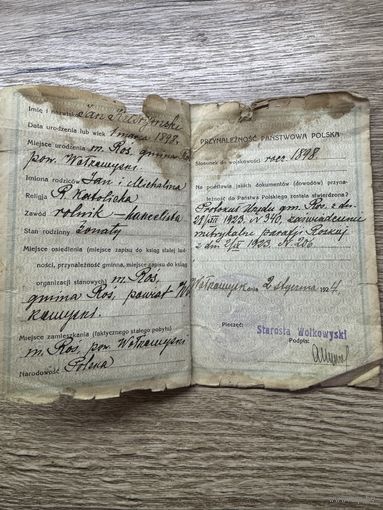 Imię i nazwisko Jan
Data urodzenia lub wiek 1 marca 1898.
Miejsce urodzenia m. Roś, gmina
pow. Wołkowyski
Imiona rodziców Jan i Michalina
Religja R. Katolicka
Zawód rolnik – kancelista
Stan rodzinny żonaty
Miejsce osiedlenia (miejsce zapisu do ksiąg stałej lud-
ności, przynależność gminna, miejsce zapisu do ksiąg
organizacji stanowych) m. Roś,
gmina Roś, powiat
Miejsce zamieszkania (faktycznego stałego pobytu)
m. Roś, pow. Wołkowyski
Narodowość Polska
PRZYNALEŻNOŚĆ PAŃSTWOWA POLSKA
Stosunek do wojskowości rocz. 1898
Na podstawie jakich dokumentów (dowodów) przyna-
leżność do Państwa Polskiego została stwierdzona?
Urzędu gm. Roś z dn.
1923. N 340, zaświadczenie
metrykalne parafji Roskiej
z dn. 1923. N. 286
dnia 2 stycznia 1924
Pieczęć:
Starosta Wołkowyski
Podpis: